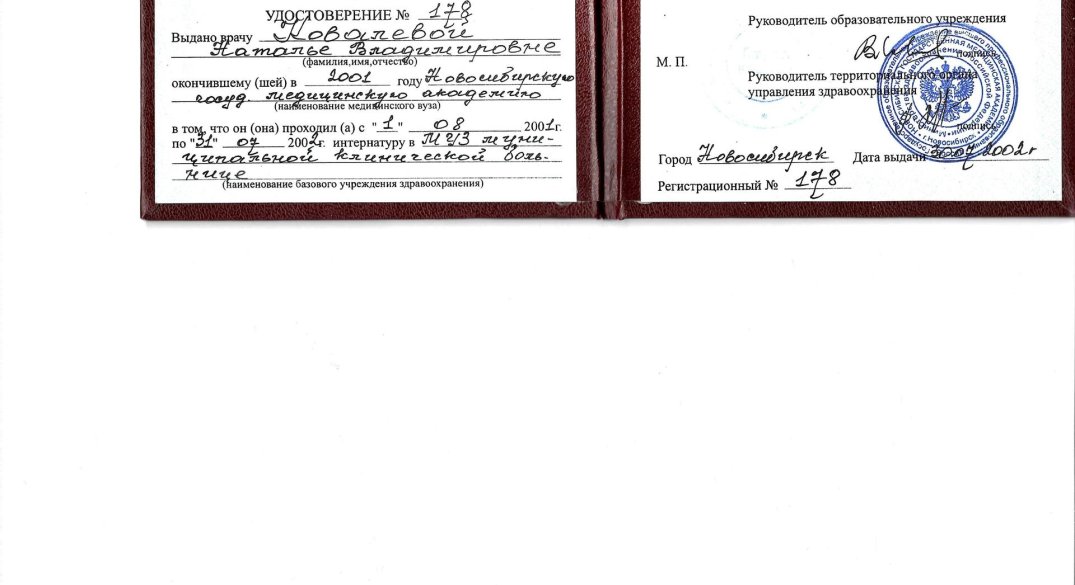 УДОСТОВЕРЕНИЕ № 178
Выдано врачу Ковалевой
Наталье Владимировне
(фамилия,имя,отчество)
окончившему (шей) в 2001 году Новосибирскую
госуд. медицинскую академию
(наименование медицинского вуза)
в том, что он (она) проходил (а) с "1" 08 2001г.
по "31" 07 2002г. интернатуру в МУЗ муни-
ципальной клинической боль-
нице
(наименование базового учреждения здравоохранения)
Руководитель образовательного учреждения
подпись
М. П.
Руководитель территориального органа
управления здравоохранения
подпись
Город Новосибирск Дата выдачи 30 07 2002г
Регистрационный № 178